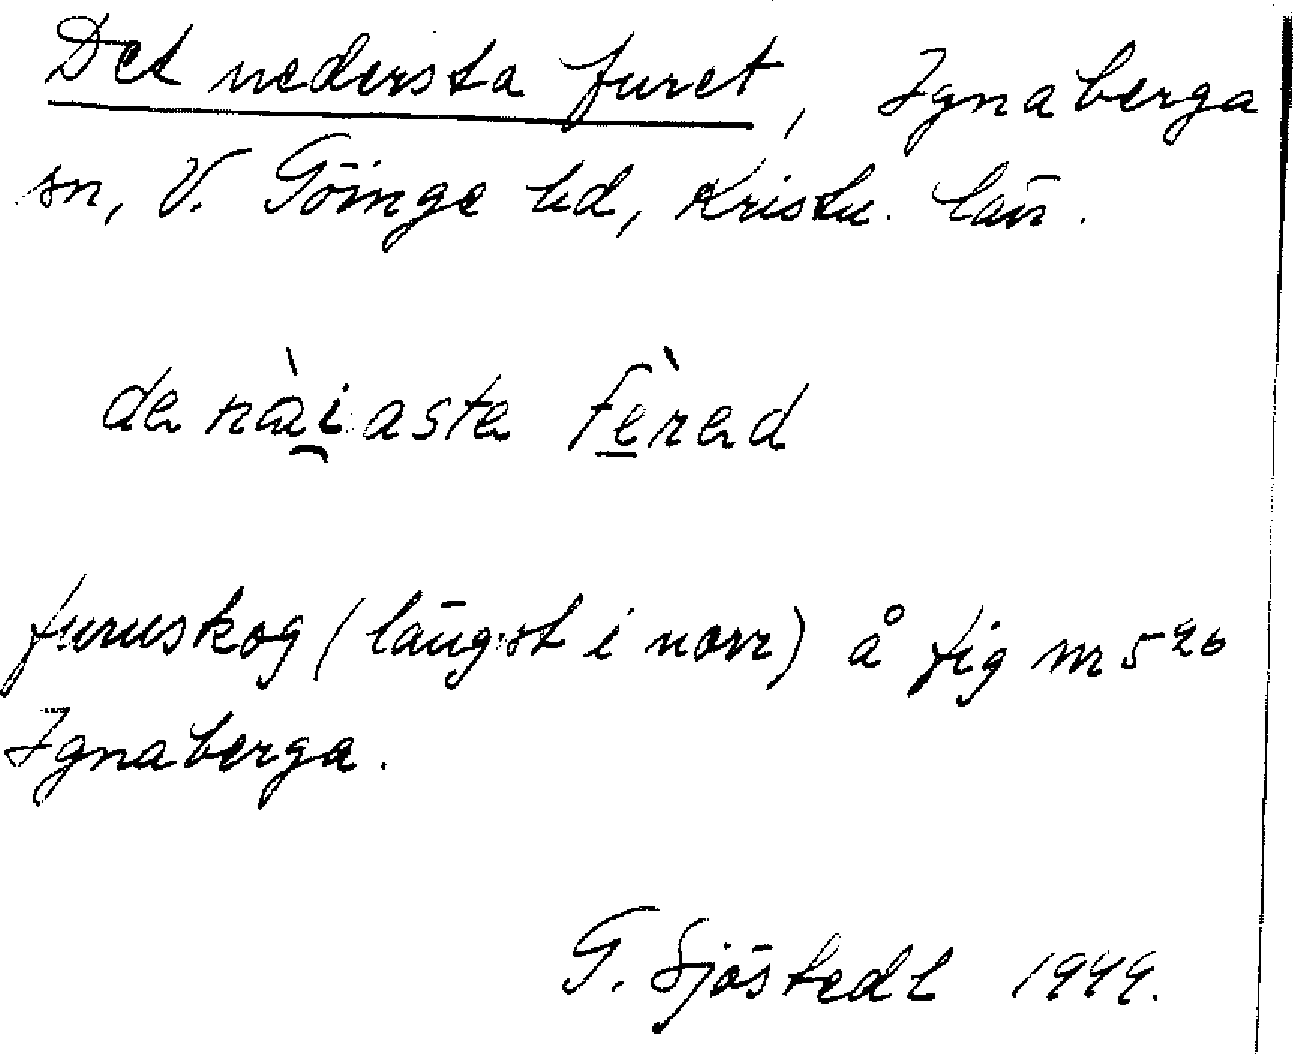 Det nedersta furet, Ignaberga
sn, V. Göinge hd, Kristn. län.
de nài̯aste fèred
furuskog (längst i norr) å fig nr 5²⁶
Ignaberga.
G. Sjöstedt 1949.